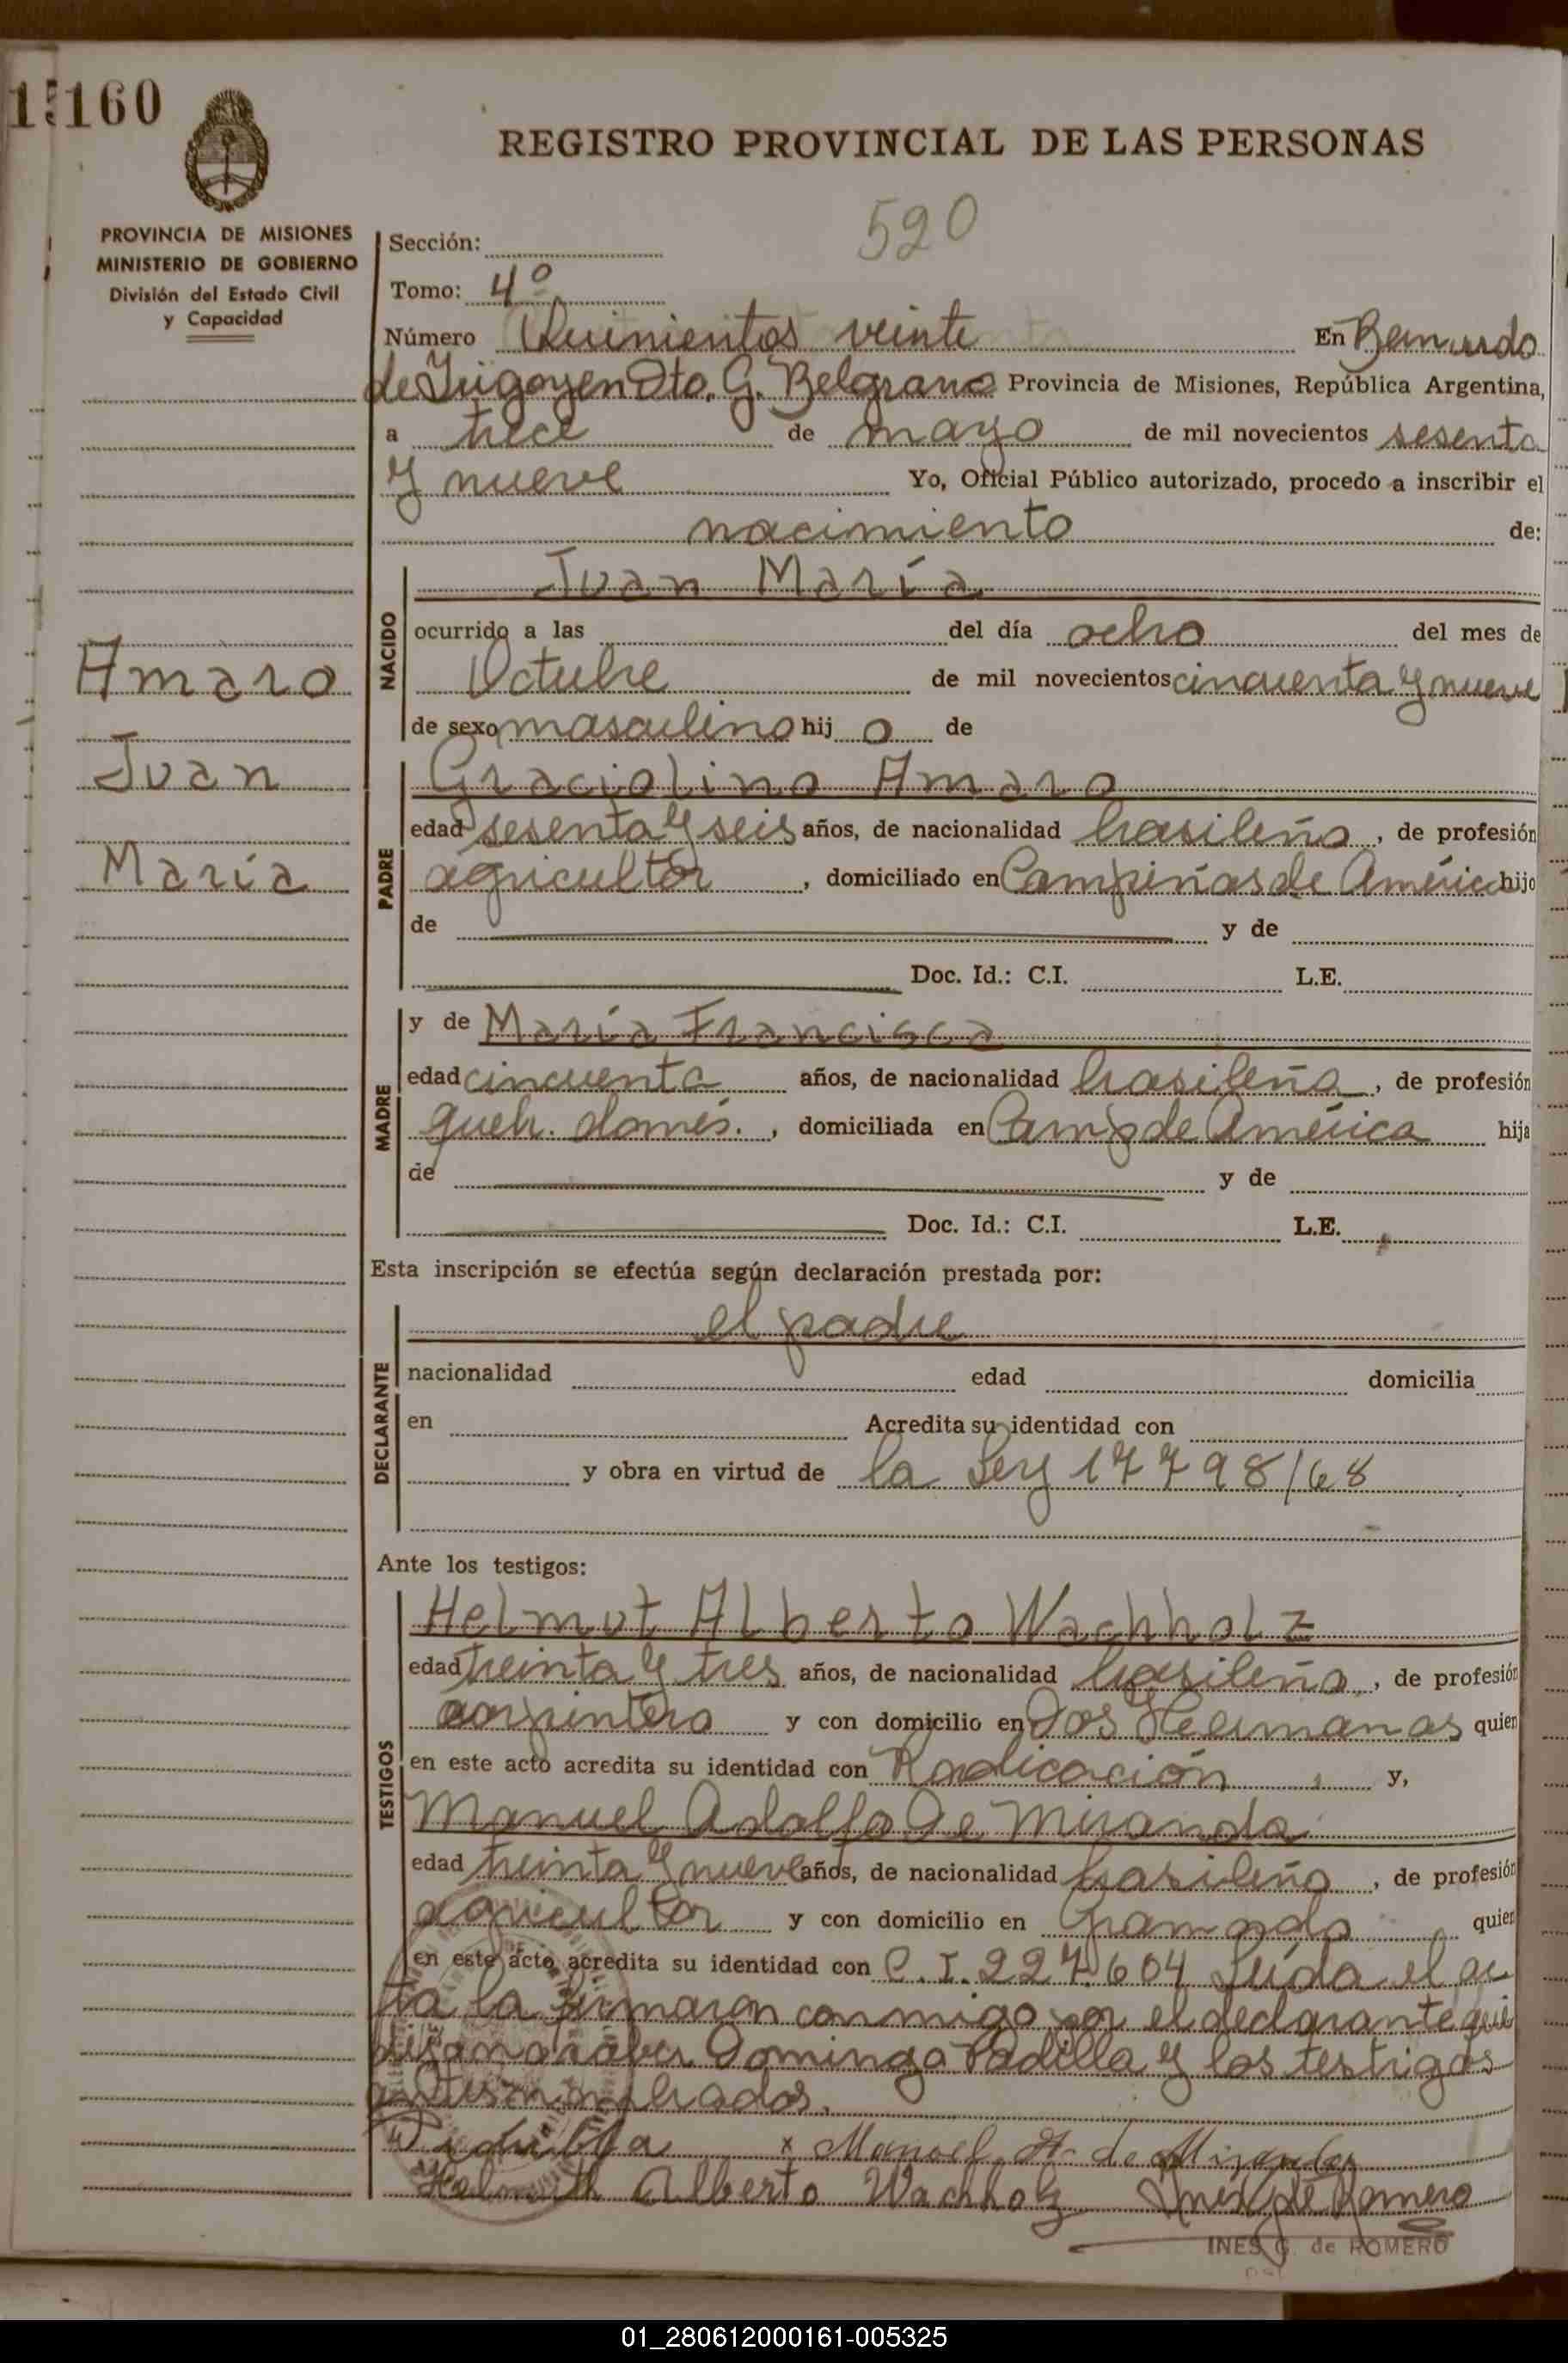 15160
REGISTRO PROVINCIAL DE LAS PERSONAS
520
PROVINCIA DE MISIONES
MINISTERIO DE GOBIERNO
División del Estado Civil
y Capacidad
Sección:
Tomo: 4º
Número Quinientos veinte En Bernardo
de Irigoyen Dto. G. Belgrano Provincia de Misiones, República Argentina,
a trece de mayo de mil novecientos sesenta
y nueve Yo, Oficial Público autorizado, procedo a inscribir el
nacimiento de:
Amaro
Juan
María
NACIDO
Juan María
ocurrido a las del día ocho del mes de
Octubre de mil novecientos cincuenta y nueve
de sexo masculino hij o de
PADRE
Graciolino Amaro
edad sesenta y seis años, de nacionalidad brasileño, de profesión
agricultor, domiciliado en Campiñas de América hijo
de y de
Doc. Id.: C.I. L.E.
MADRE
y de María Francisca
edad cincuenta años, de nacionalidad brasileña, de profesión
queh. domés., domiciliada en Camp de América hija
de y de
Doc. Id.: C.I. L.E.
Esta inscripción se efectúa según declaración prestada por:
DECLARANTE
el padre
nacionalidad edad domicilia
en Acredita su identidad con
y obra en virtud de la Ley 17798/68
Ante los testigos:
TESTIGOS
Helmut Alberto Wachholz
edad treinta y tres años, de nacionalidad brasileño, de profesión
carpintero y con domicilio en Dos Hermanas quien
en este acto acredita su identidad con Radicación y,
Manuel Adolfo De Miranda
edad treinta y nueve años, de nacionalidad brasileño, de profesión
agricultor y con domicilio en Gramado quien
en este acto acredita su identidad con C.I. 227.604 Leída el ac
ta la firmaron conmigo por el declarante que
Domingo Padilla y los testigos
antes nombrados.
Padilla x Manoel A. de Miranda
Helmuth Alberto Wachholz Inés G de Romero
INES G. de ROMERO
01_280612000161-005325